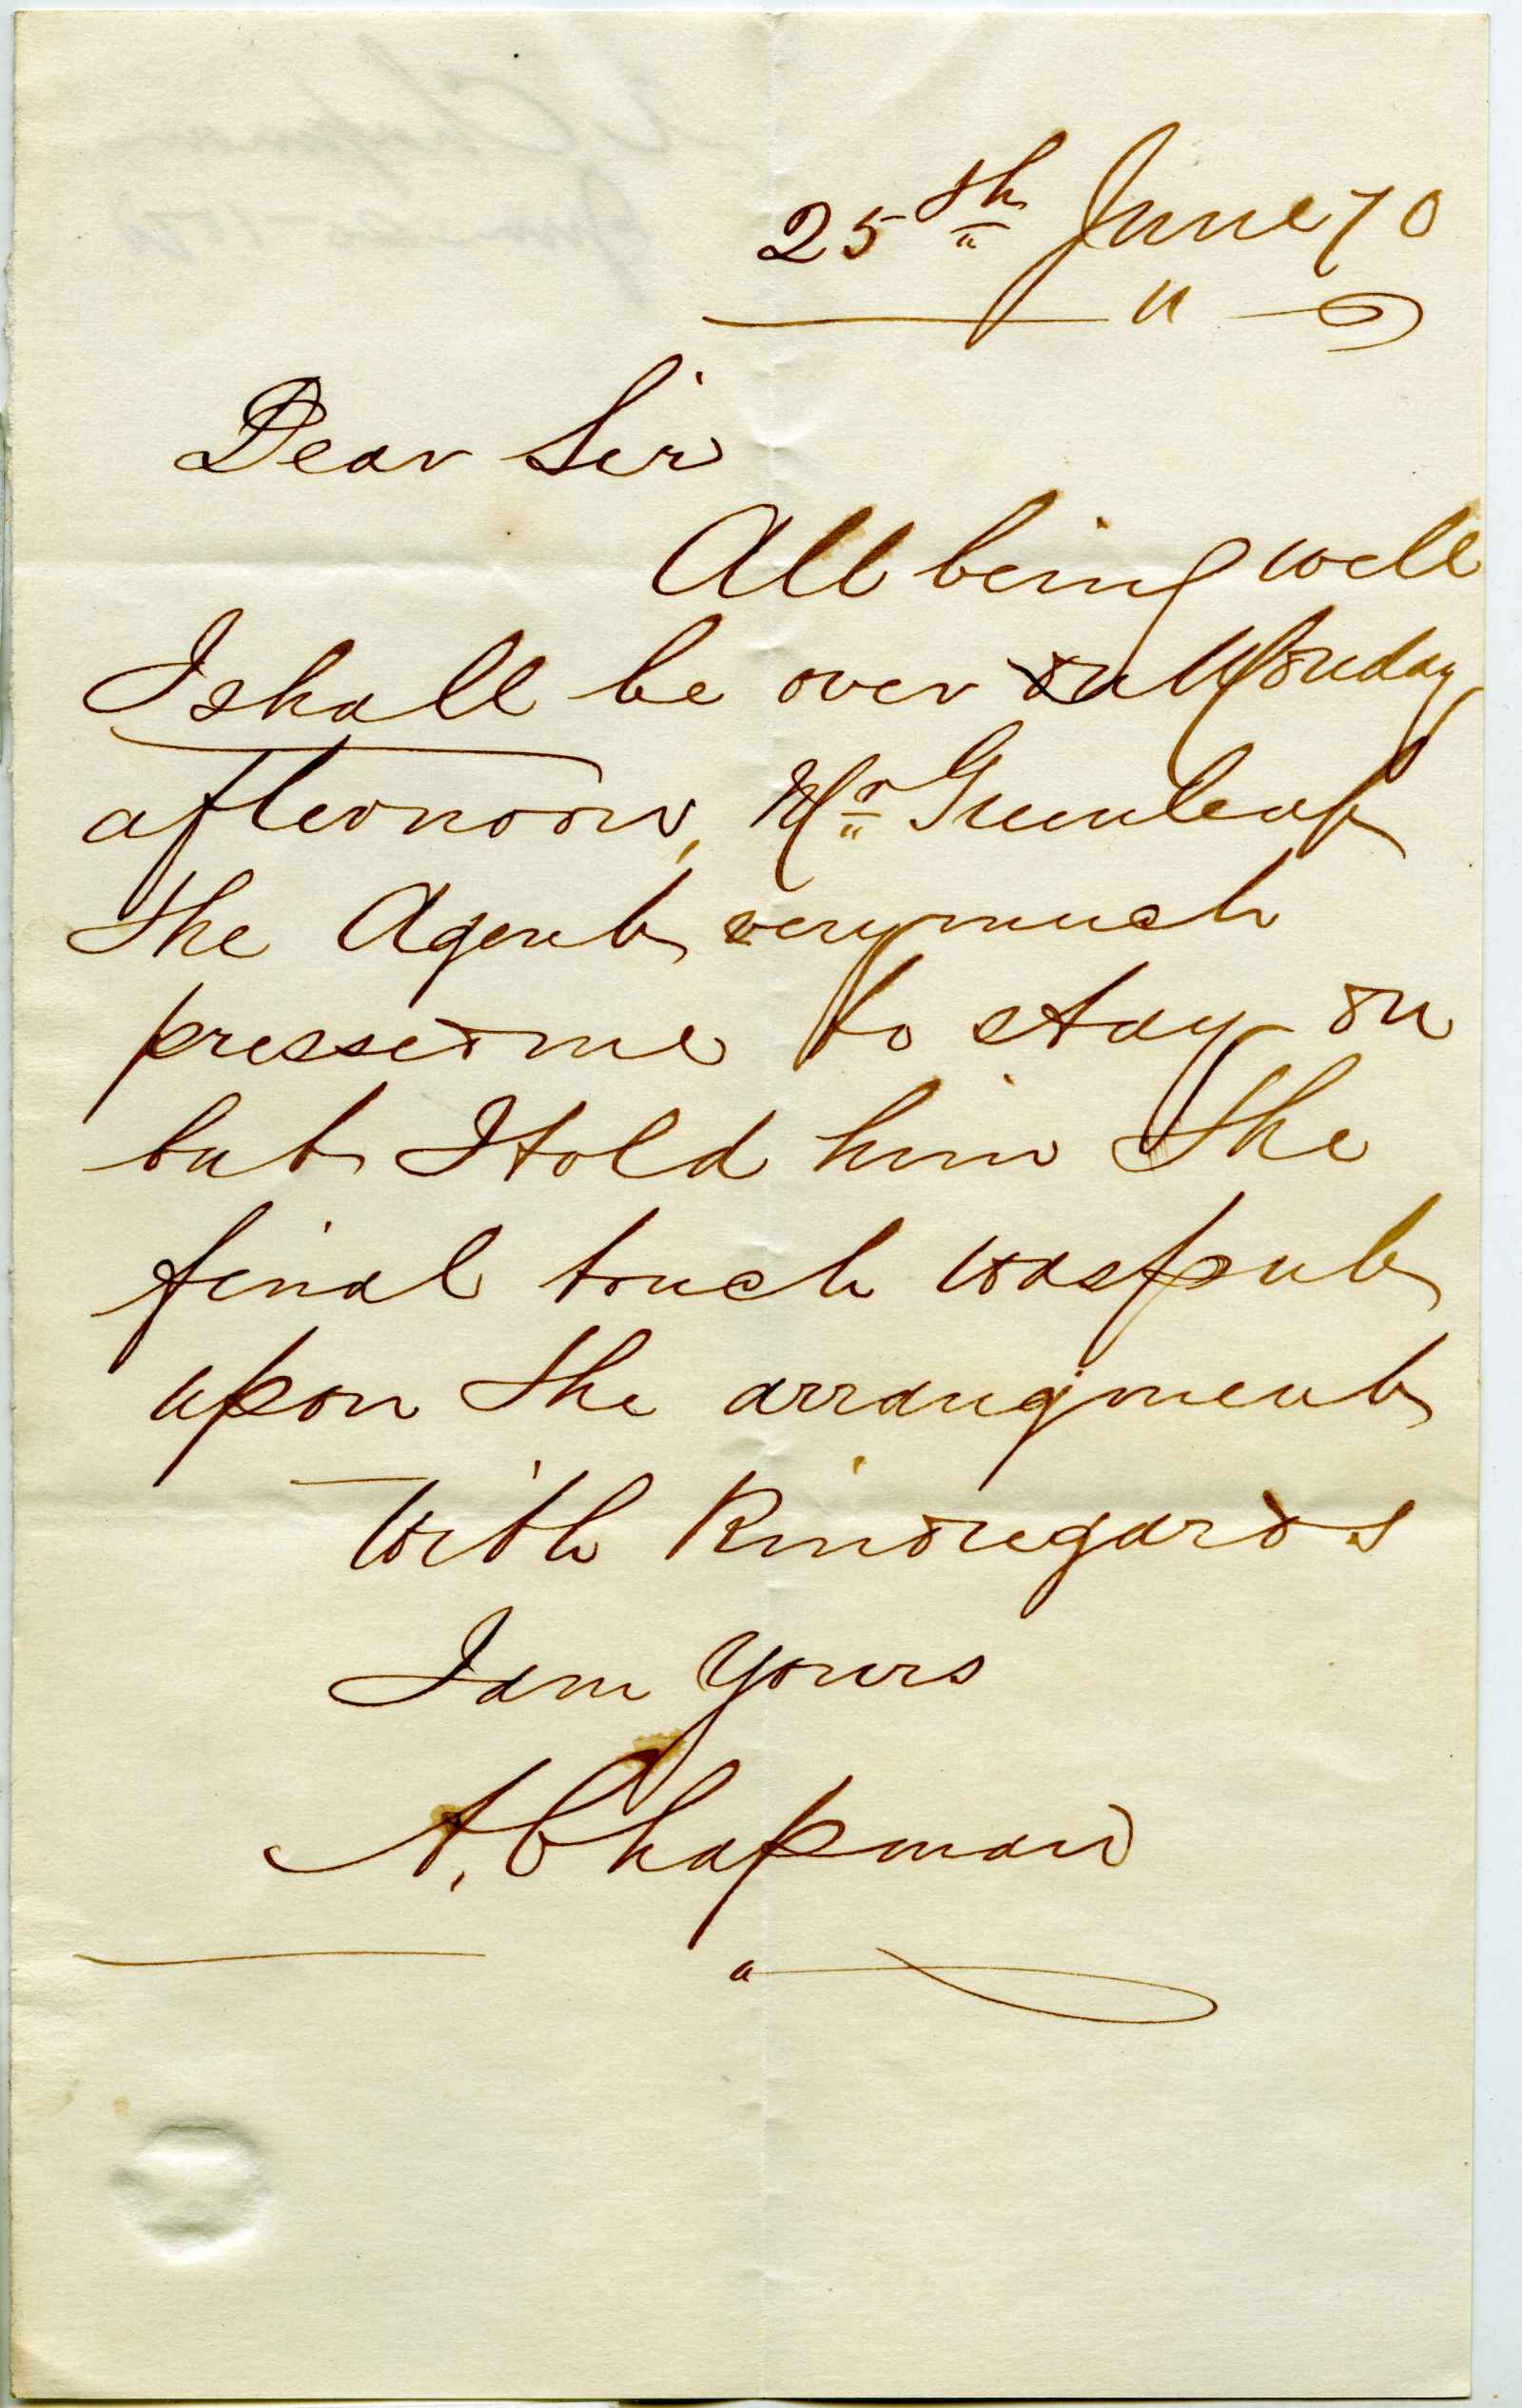 25th June 70
Dear Sir
All being well
I shall be over on Monday
afternoon, Mr Greenleaf
the Agent very much
pressed me to stay on
but I told him the
final touch was put
upon the arrangment
With Kind regards
I am Yours
A. Chapman